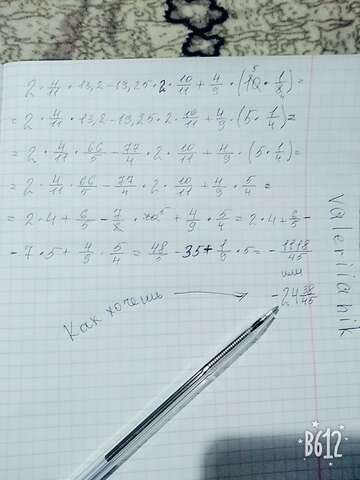 2 · 4/11 · 13,2 - 19,25 · 2 · 10/11 + 4/9 · (10 5 · 1/8 4) =
= 2 · 4/11 · 13,2 - 19,25 · 2 · 10/11 + 4/9 · (5 · 1/4) =
= 2 · 4/11 · 66/5 - 77/4 · 2 · 10/11 + 4/9 · (5 · 1/4) =
= 2 · 4/11 · 66/5 - 77/4 · 2 · 10/11 + 4/9 · 5/4 =
= 2 · 4 + 6/5 - 7/2 · 10 5 + 4/9 · 5/4 = 2 · 4 + 6/5 -
- 7 · 5 + 4/9 · 5/4 = 48/5 - 35 + 1/9 · 5 = - 1118/45
или
Как хочешь → - 24 38/45
valeriia nik
B612